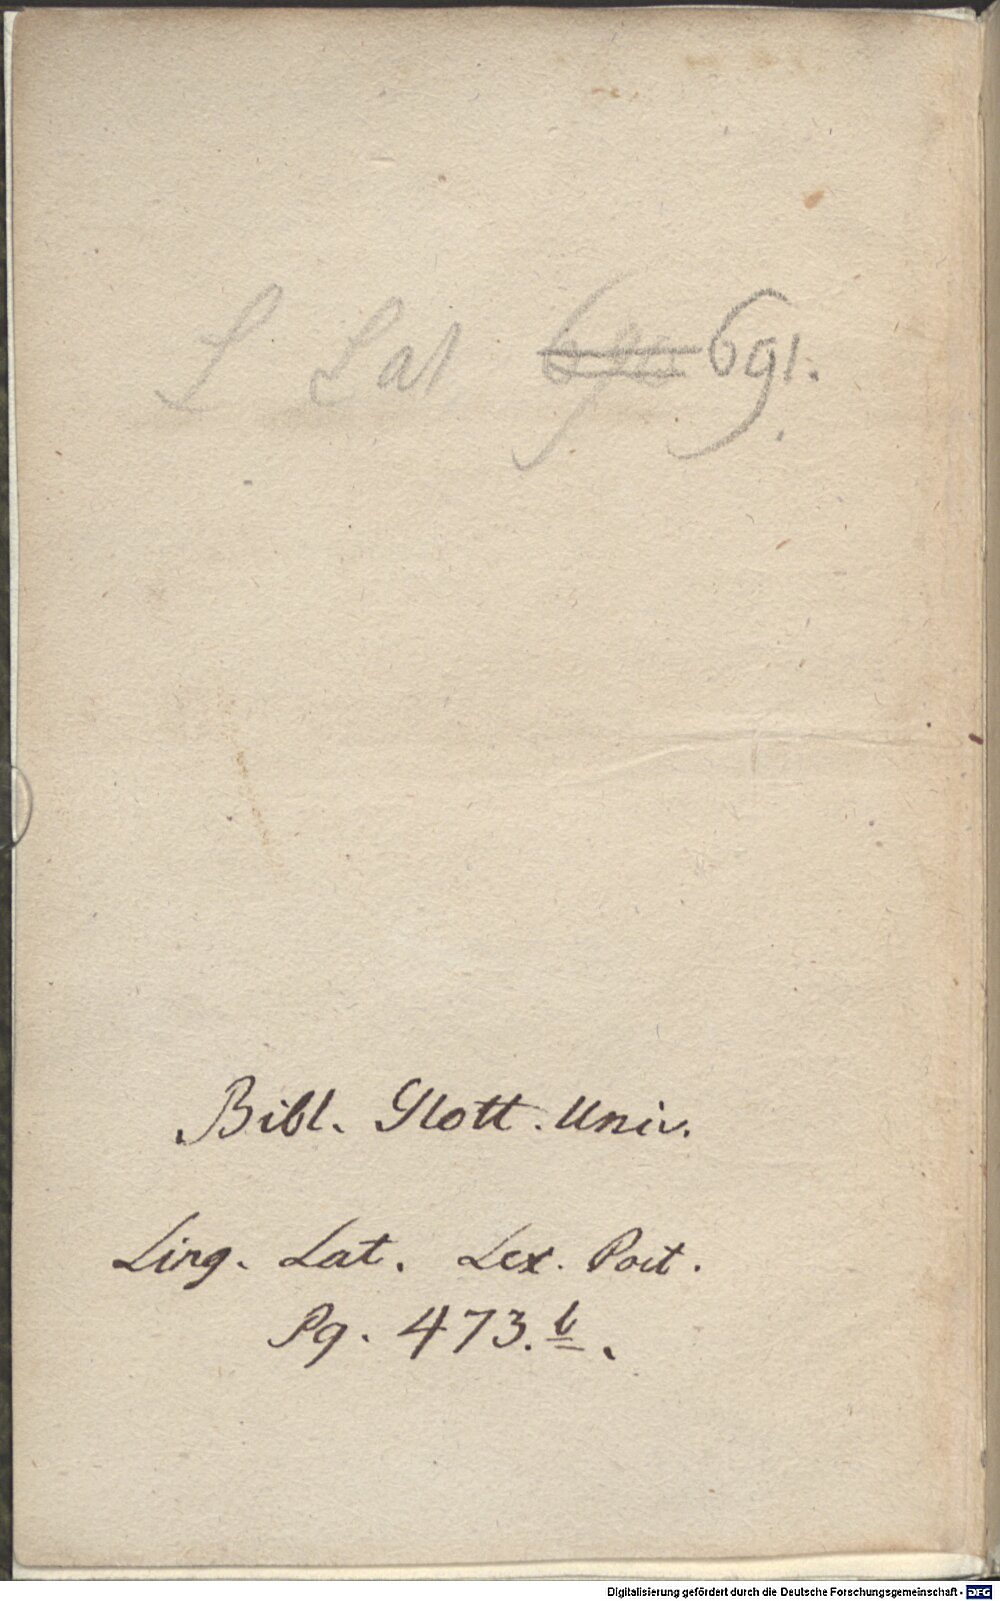 L Lat 691.
Bibl. Glott. Univ.
Ling. Lat. Lex. Poet.
Pg. 473. b.
Digitalisierung gefördert durch die Deutsche Forschungsgemeinschaft - DFG